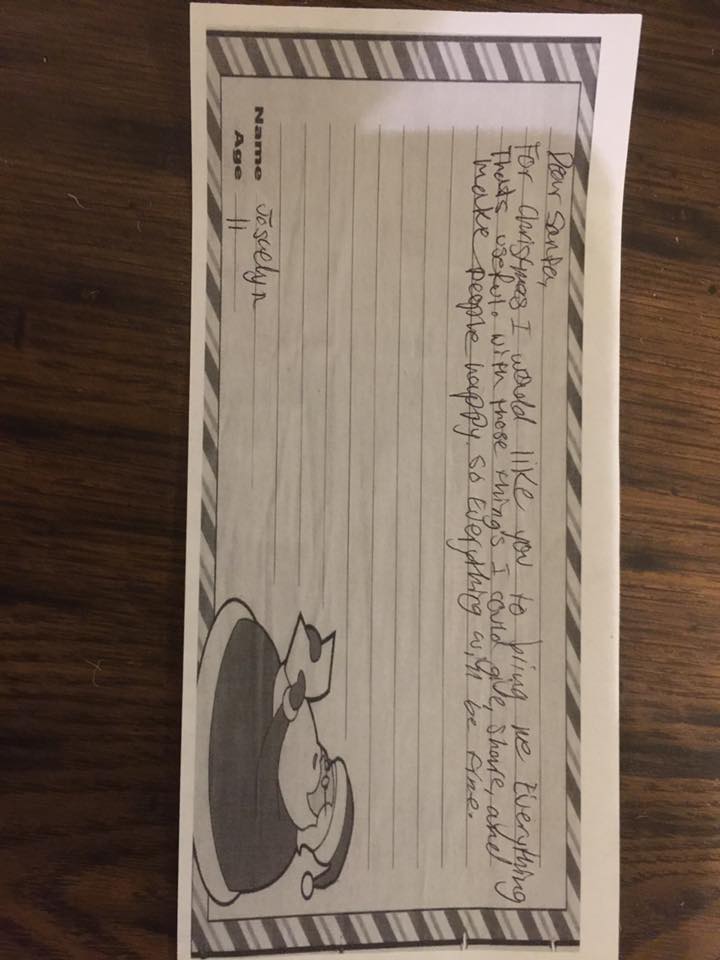 Dear Santa,
For Christmas I would like you to bring me Everything
Thats useful. with those thing's I could give, share, and
make people happy. so Everything will be fine.
Name Joscelyn
Age 11